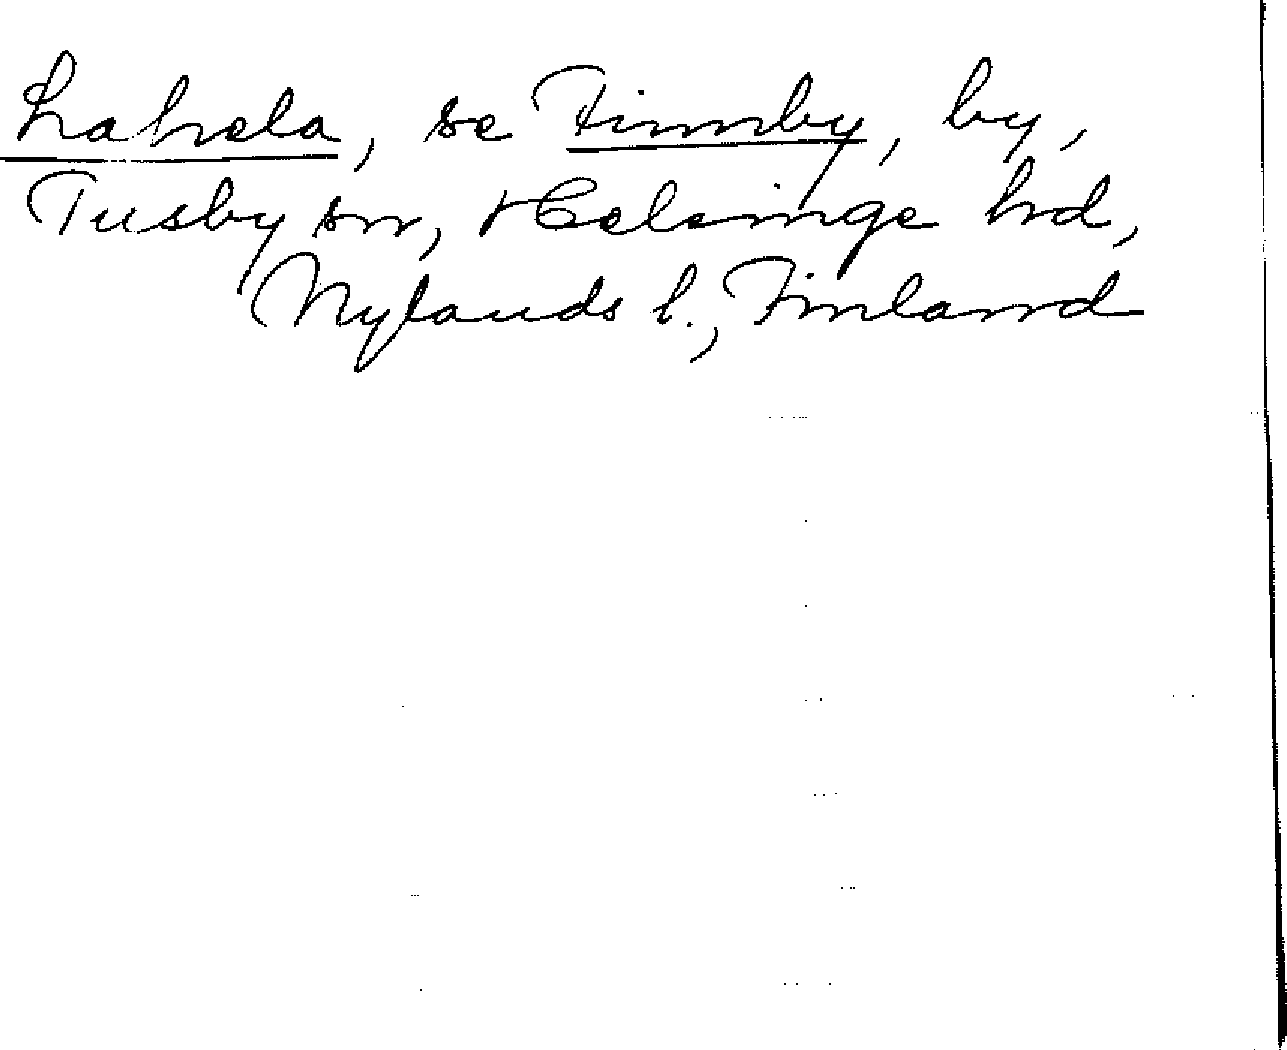 Lahela, se Finnby, by,
Tusby sn, Helsinge hd,
Nylands l., Finland